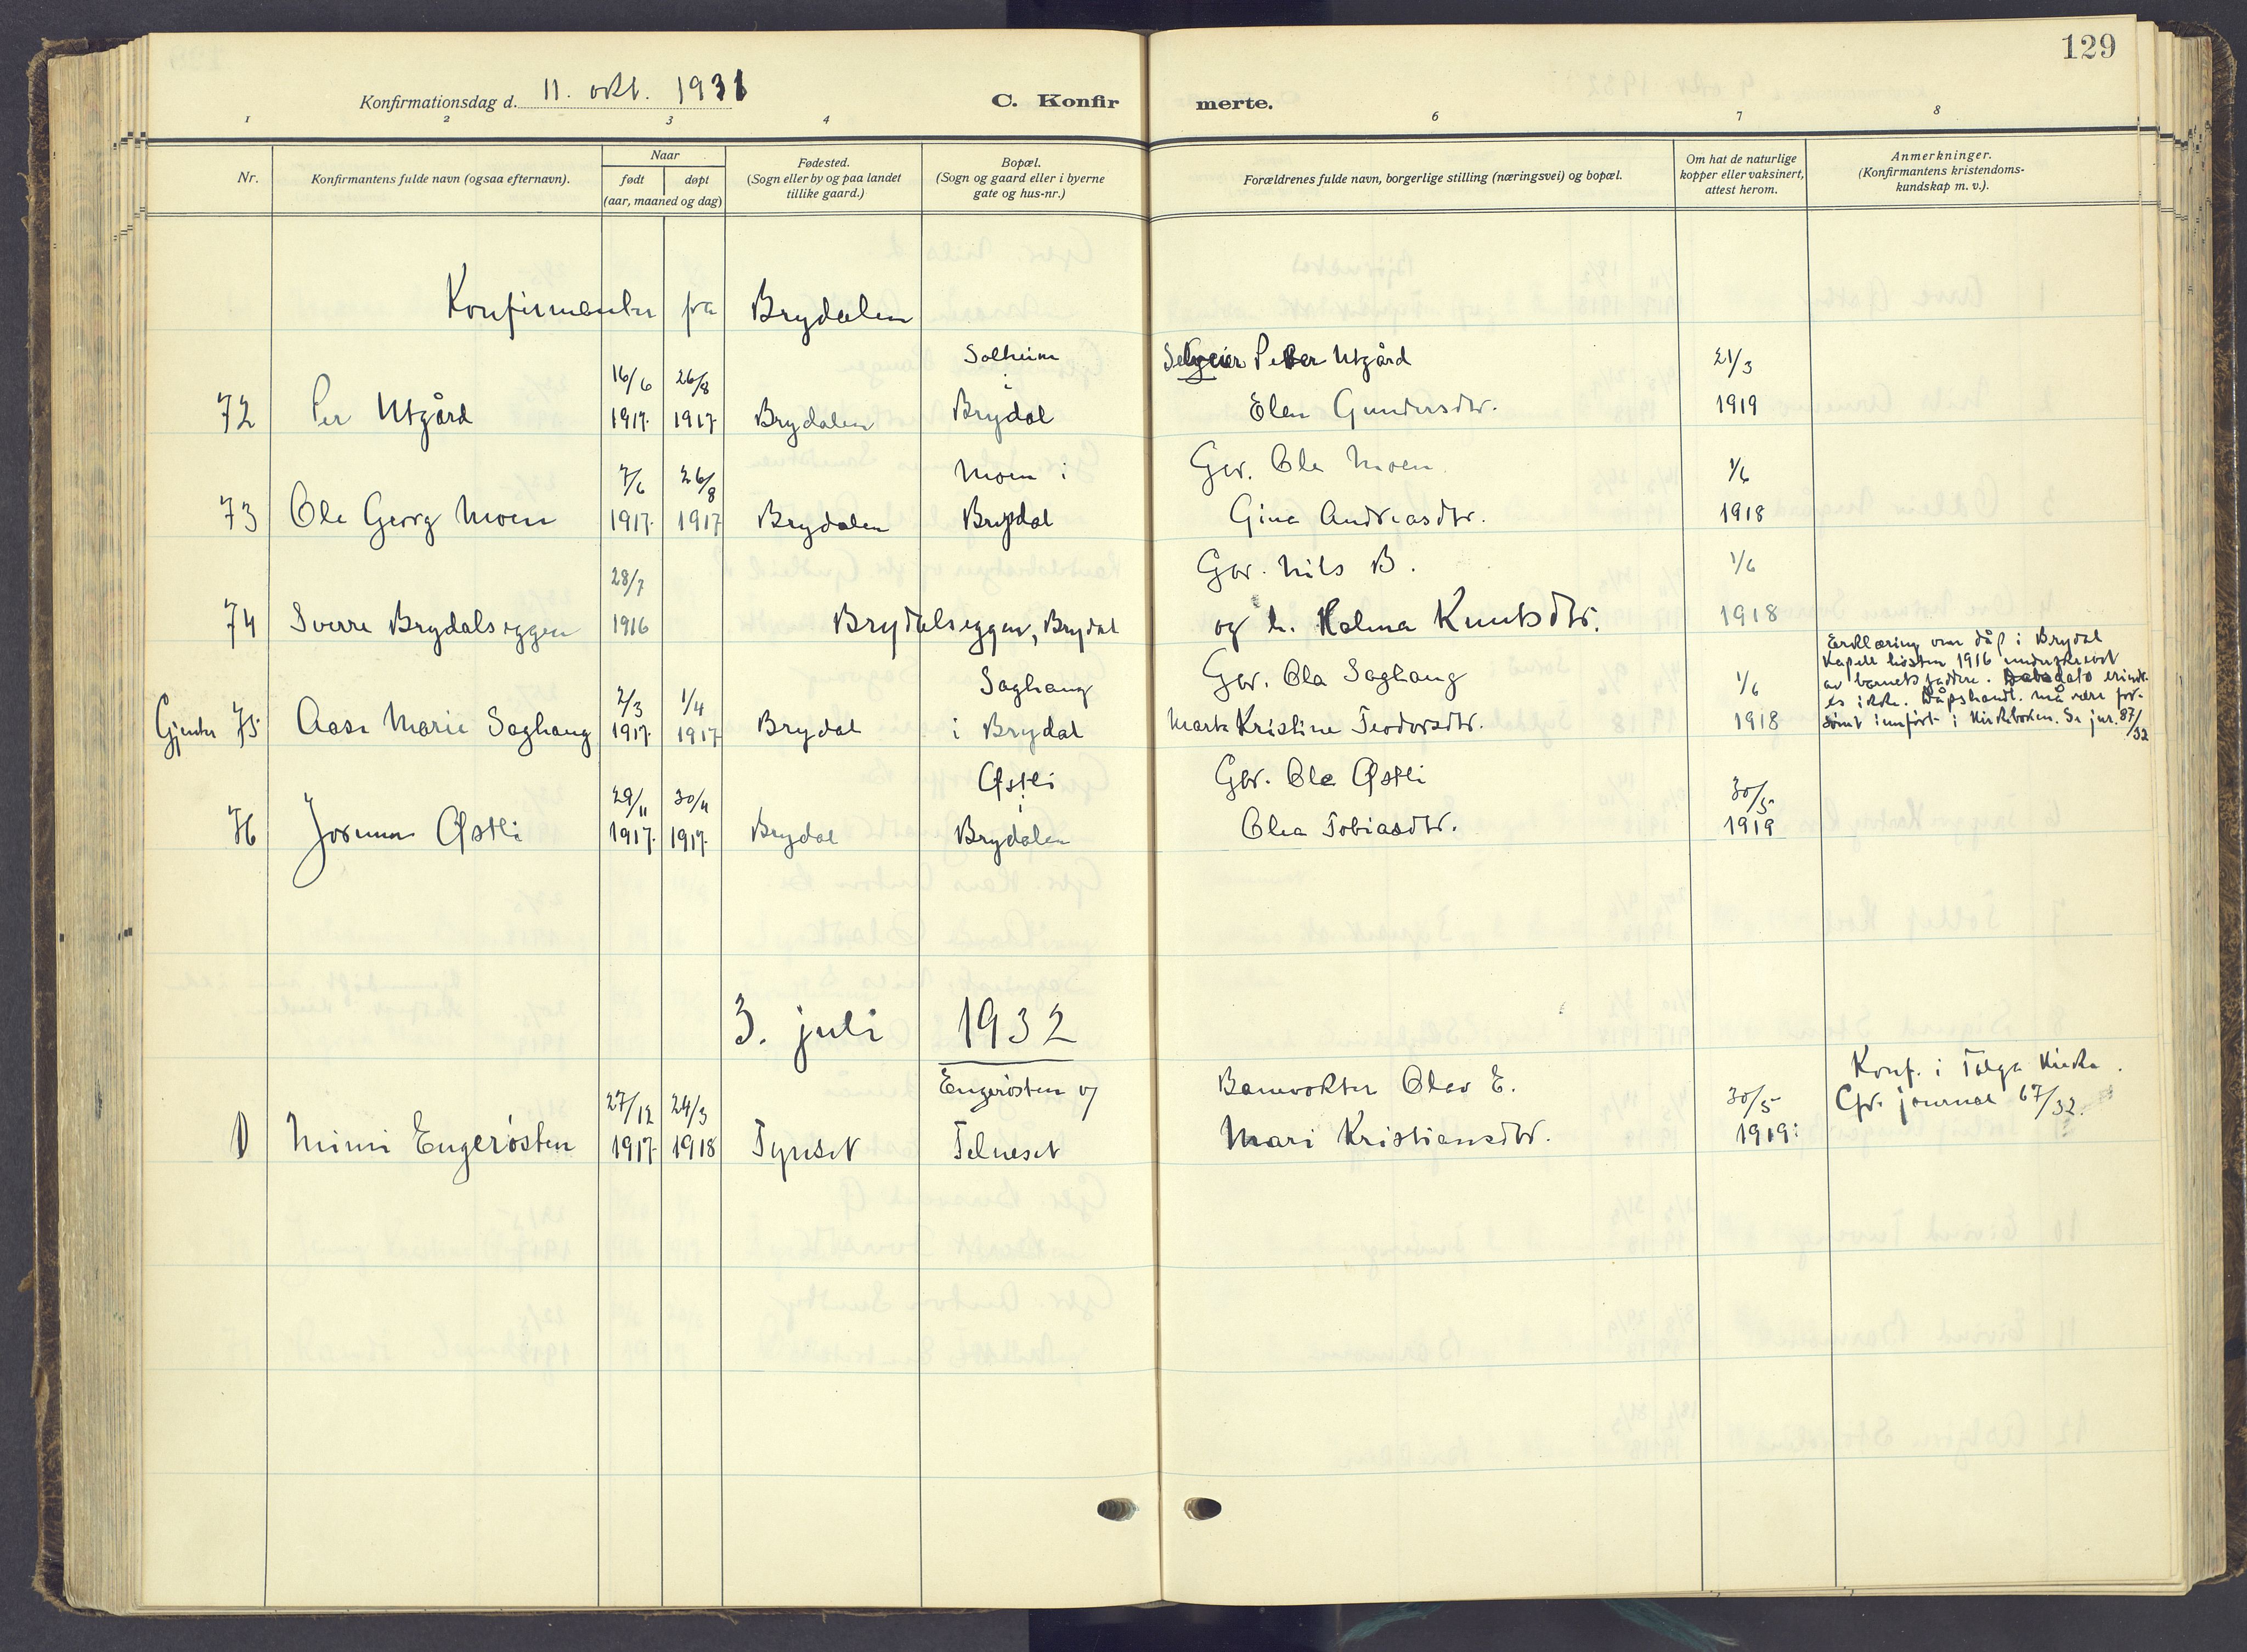 129
Konfirmationsdag d. 11. okt. 1931
C. Konfirmerte.
1 2 3 4 6 7 8
Nr.
Konfirmantens fulde navn (ogsaa efternavn).
Naar
født døpt
(aar, maaned og dag)
Fødested.
(Sogn eller by og paa landet
tillike gaard.)
Bopæl.
(Sogn og gaard eller i byerne
gate og hus-nr.)
Forældrenes fulde navn, borgerlige stilling (næringsvei) og bopæl.
Om hat de naturlige
kopper eller vaksinert,
attest herom.
Anmerkninger.
(Konfirmantens kristendoms-
kundskap m. v.).
Konfirmanter fra Brydalen
16/6 26/8 Solheim i Selveier Peder Utgård 21/3
72 Per Utgård 1917. 1917. Brydalen Brydal Elen Gundersdtr. 1919
7/6 26/8 Moen i Gbr. Ole Moen. 1/6
73 Ole Georg Moen 1917. 1917 Brydalen Brydal Gina Andreasdtr. 1918
28/7 Gbr. Nils B. 1/6
74 Sverre Brydalseggen 1916 Brydalseggen, Brydal og h. Halma Knutsdtr. 1918
Erklæring om dåp i Brydal
kapell høsten 1916 underskrevet
av barnets faddere. dato erindr-
es ikke. Dåpshandl. må være for-
sømt innført i kirkeboken. Se jnr. 87/32
2/3 1/4 Saghaug Gbr. Ola Saghaug 1/6
Gjenter 75 Aase Marie Saghaug 1917. 1917 Brydal i Brydal Marte Kristine Teodorsdtr. 1918
29/11 30/11 Østli i Gbr. Ole Østli 30/5
76 Jorunn Østli 1917. 1917. Brydal Brydalen Olea Tobiasdtr. 1919
3. juli 1932
27/12 24/3 Engerøsten og Banevokter Olav E. 30/5 Konf. i Tolga kirke.
1 Mimi Engerøsten 1917. 1918 Tynset Telneset Mari Kristiansdtr. 1919. Cfr. journal 67/32.